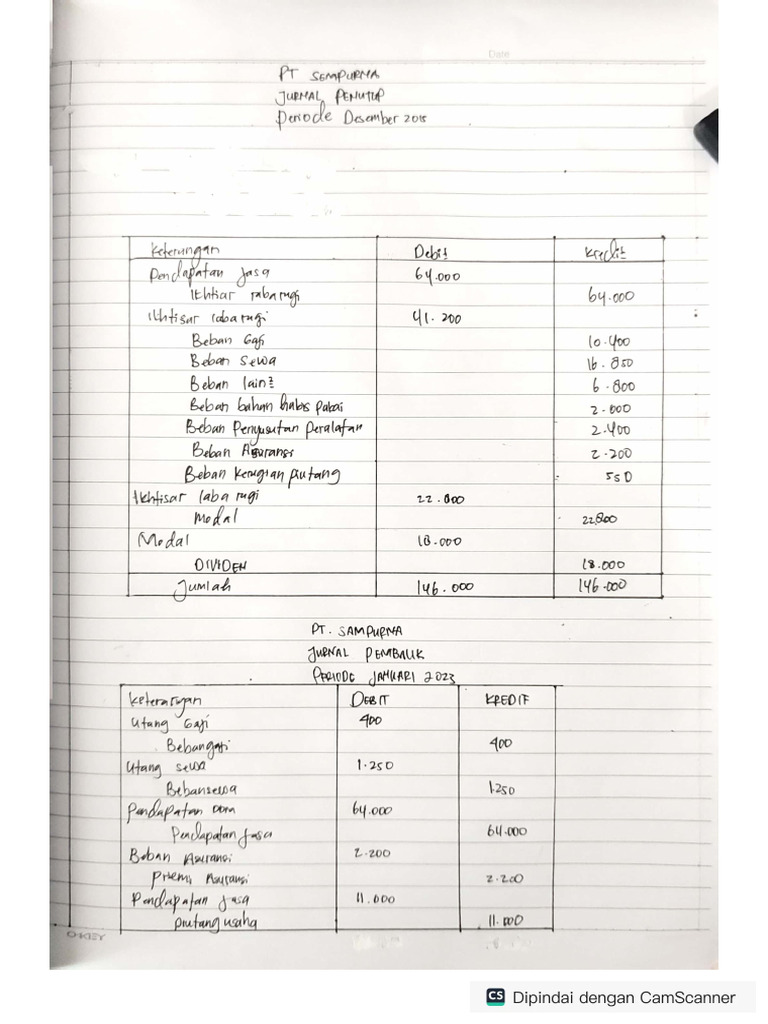 Date
PT SEMPURNA
JURNAL PENUTUP
Periode Desember 2015
Keterangan Debit Kredit
Pendapatan Jasa 64.000
Ikhtiar raba rugi 64.000
Ikhtisar laba rugi 41.200
Beban Gaji 10.400
Beban Sewa 16.850
Beban lain² 6.800
Beban bahan habis pakai 2.000
Beban Penyusutan Peralatan 2.400
Beban Asuransi 2.200
Beban Kerugian piutang 550
Ikhtisar laba rugi 22.800
Modal 22.800
Modal 18.000
DIVIDEN 18.000
Jumlah 146.000 146.000
PT. SAMPURNA
JURNAL PEMBALIK
PERIODE JANUARI 2023
Keterangan DEBIT KREDIT
Utang Gaji 400
Beban gaji 400
Utang sewa 1.250
Beban sewa 1.250
Pendapatan DDM 64.000
Pendapatan Jasa 64.000
Beban Asuransi 2.200
Premi Asuransi 2.200
Pendapatan Jasa 11.000
Piutang usaha 11.000
OKEY
CS Dipindai dengan CamScanner